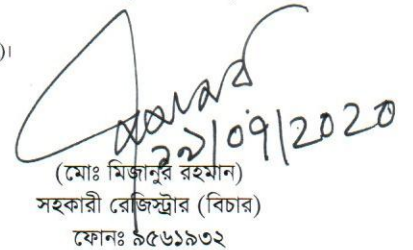 )।
২৯/০৭/2020
(মোঃ মিজানুর রহমান)
সহকারী রেজিস্ট্রার (বিচার)
ফোনঃ ৯৫৬১৯৩২